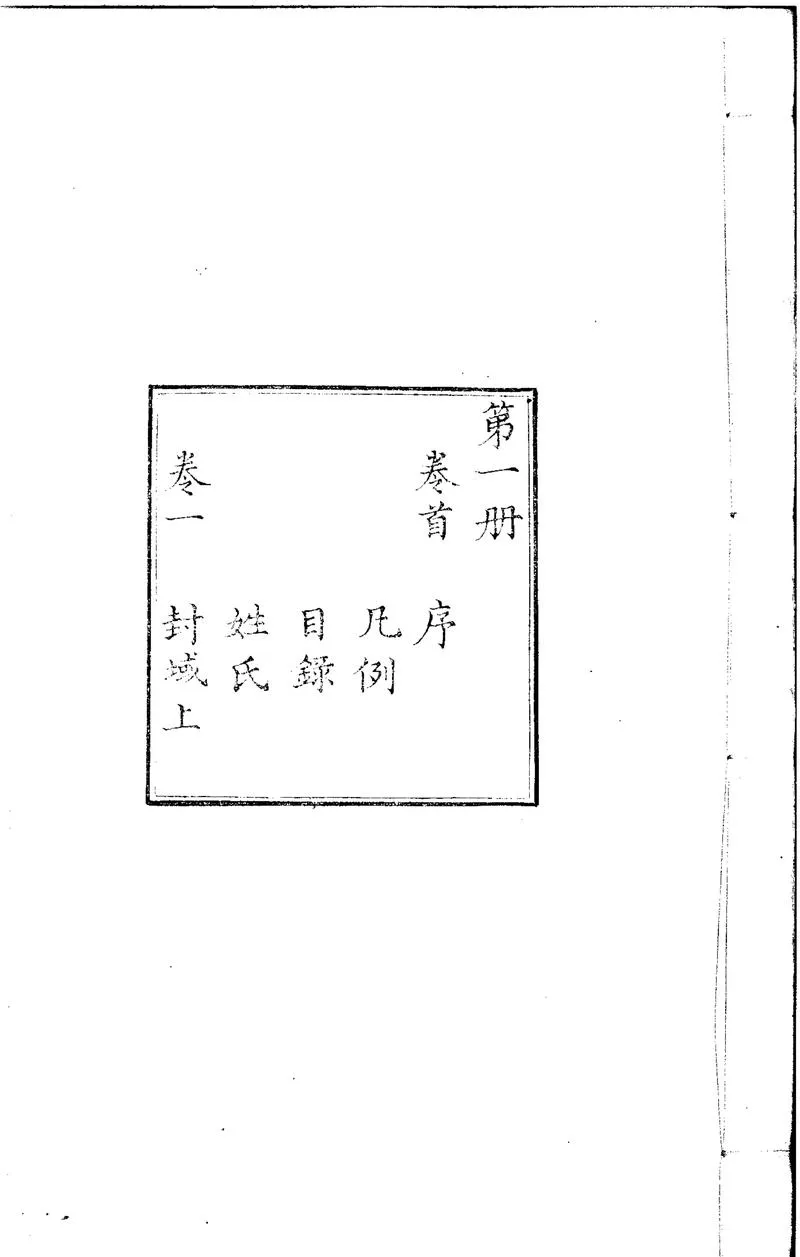 第一册
卷首　序
凡例
目録
姓氏
卷一　封域上